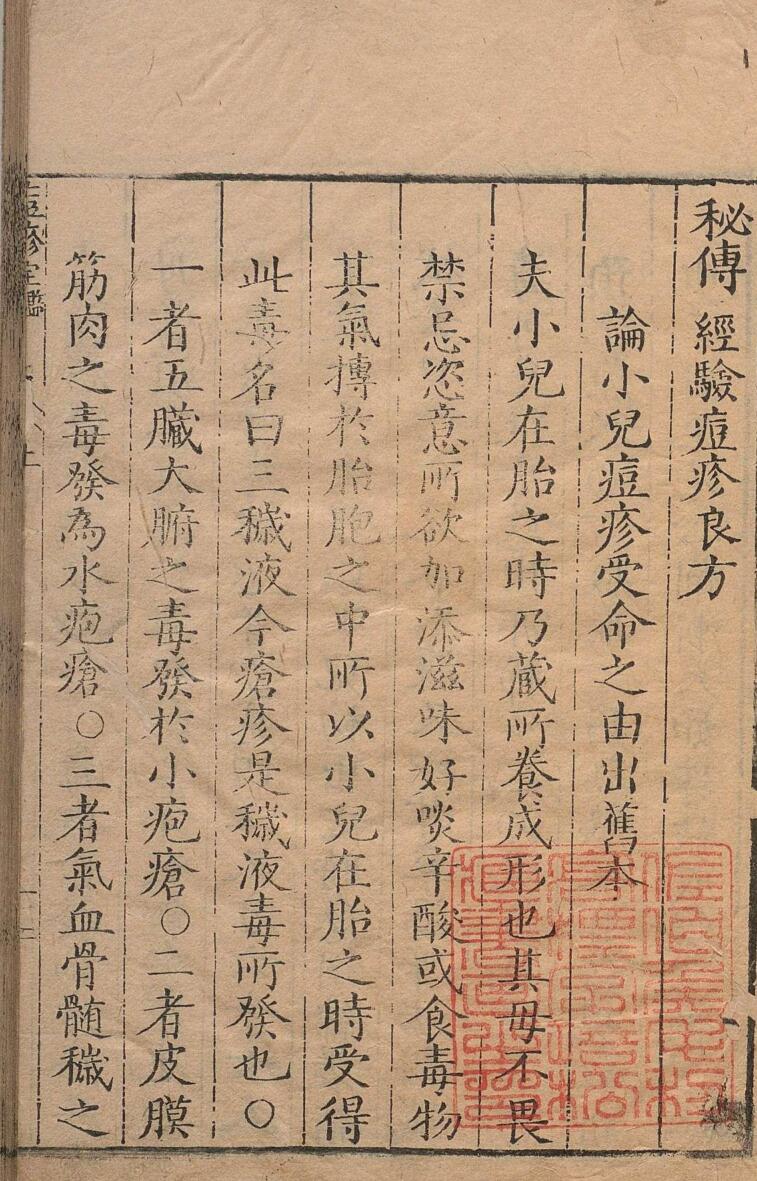 秘傳經驗痘疹良方
論小兒痘疹受命之由出舊本
夫小兒在胎之時乃蔵所養成形也其母不畏
禁忌恣意所欲加添滋味好啖辛酸或食毒物
其氣摶於胎胞之中所以小兒在胎之時受得
此毒名曰三穢液今瘡疹是穢液毒所發也〇
一者五臟六腑之毒發於小疱瘡〇二者皮膜
筋肉之毒發為水疱瘡〇三者氣血骨髓穢之